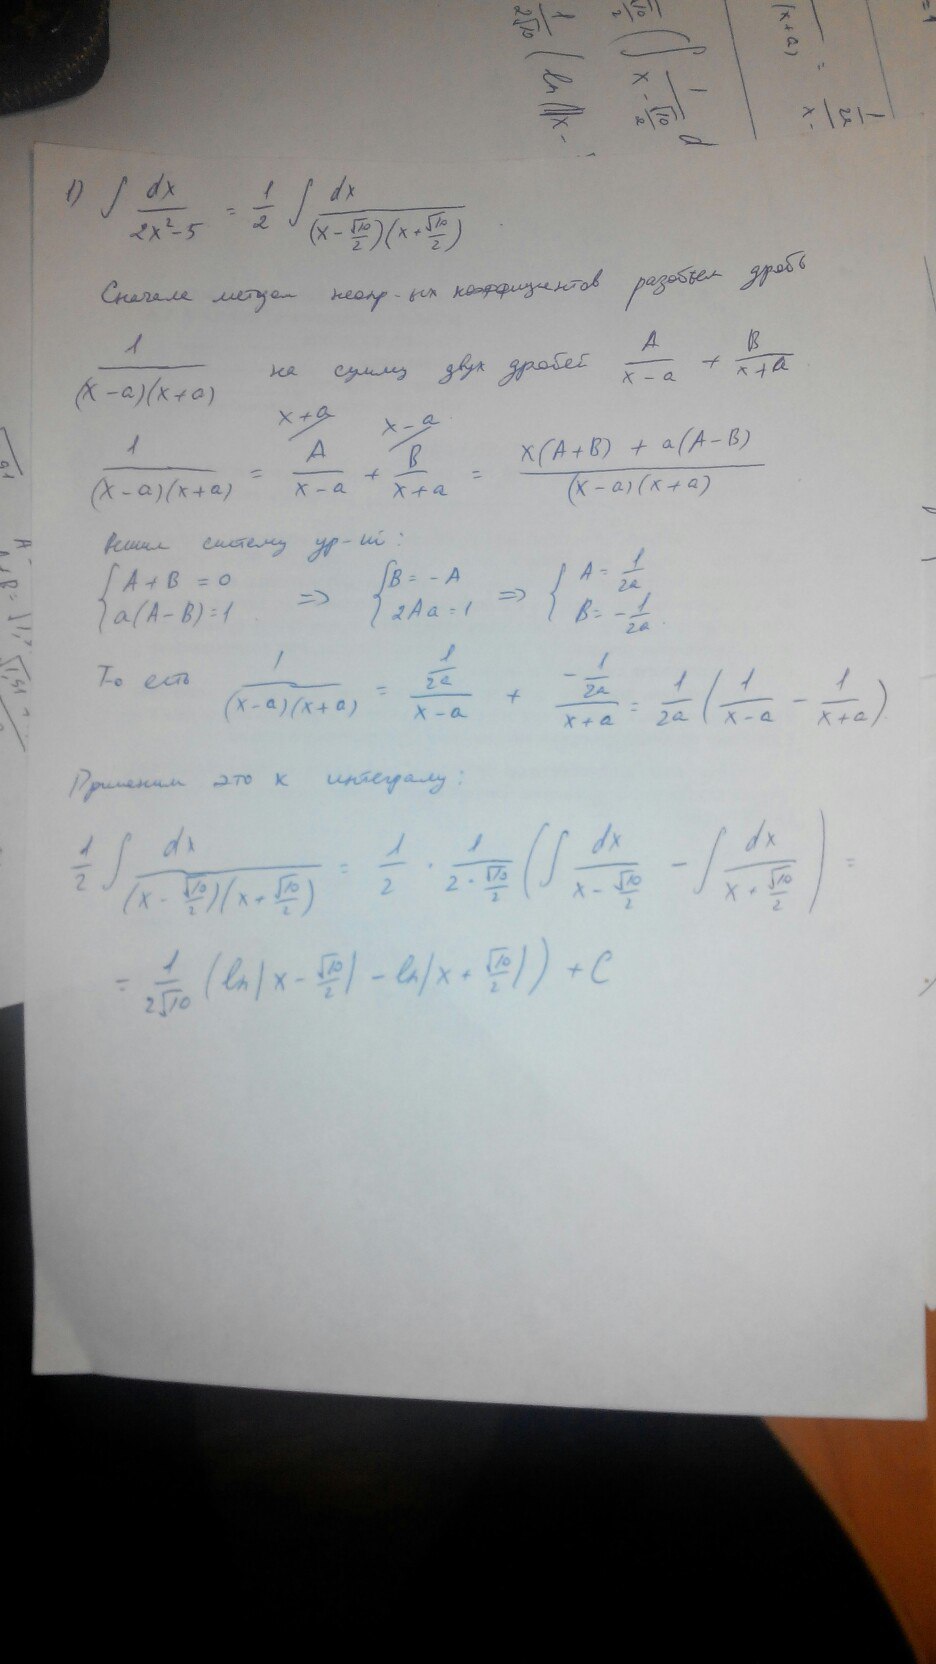 1) ∫ dx/(2x²-5) = 1/2 ∫ dx/((x-√10/2)(x+√10/2))
Сначала методом неопр-ых коэффициентов разобьем дробь
1/((x-a)(x+a)) на сумму двух дробей A/(x-a) + B/(x+a)
1/((x-a)(x+a)) = A/(x-a) (x+a) + B/(x+a) (x-a) = (x(A+B) + a(A-B))/((x-a)(x+a))
Решим систему ур-ий:
{ A+B = 0; a(A-B)=1 => { B = -A; 2Aa = 1 => { A = 1/2a; B = -1/2a
То есть 1/((x-a)(x+a)) = (1/2a)/(x-a) + (-1/2a)/(x+a) = 1/2a (1/(x-a) - 1/(x+a))
Применим это к интегралу:
1/2 ∫ dx/((x-√10/2)(x+√10/2)) = 1/2 · 1/(2·√10/2) (∫ dx/(x-√10/2) - ∫ dx/(x+√10/2)) =
= 1/(2√10) (ln|x-√10/2| - ln|x+√10/2|) + C